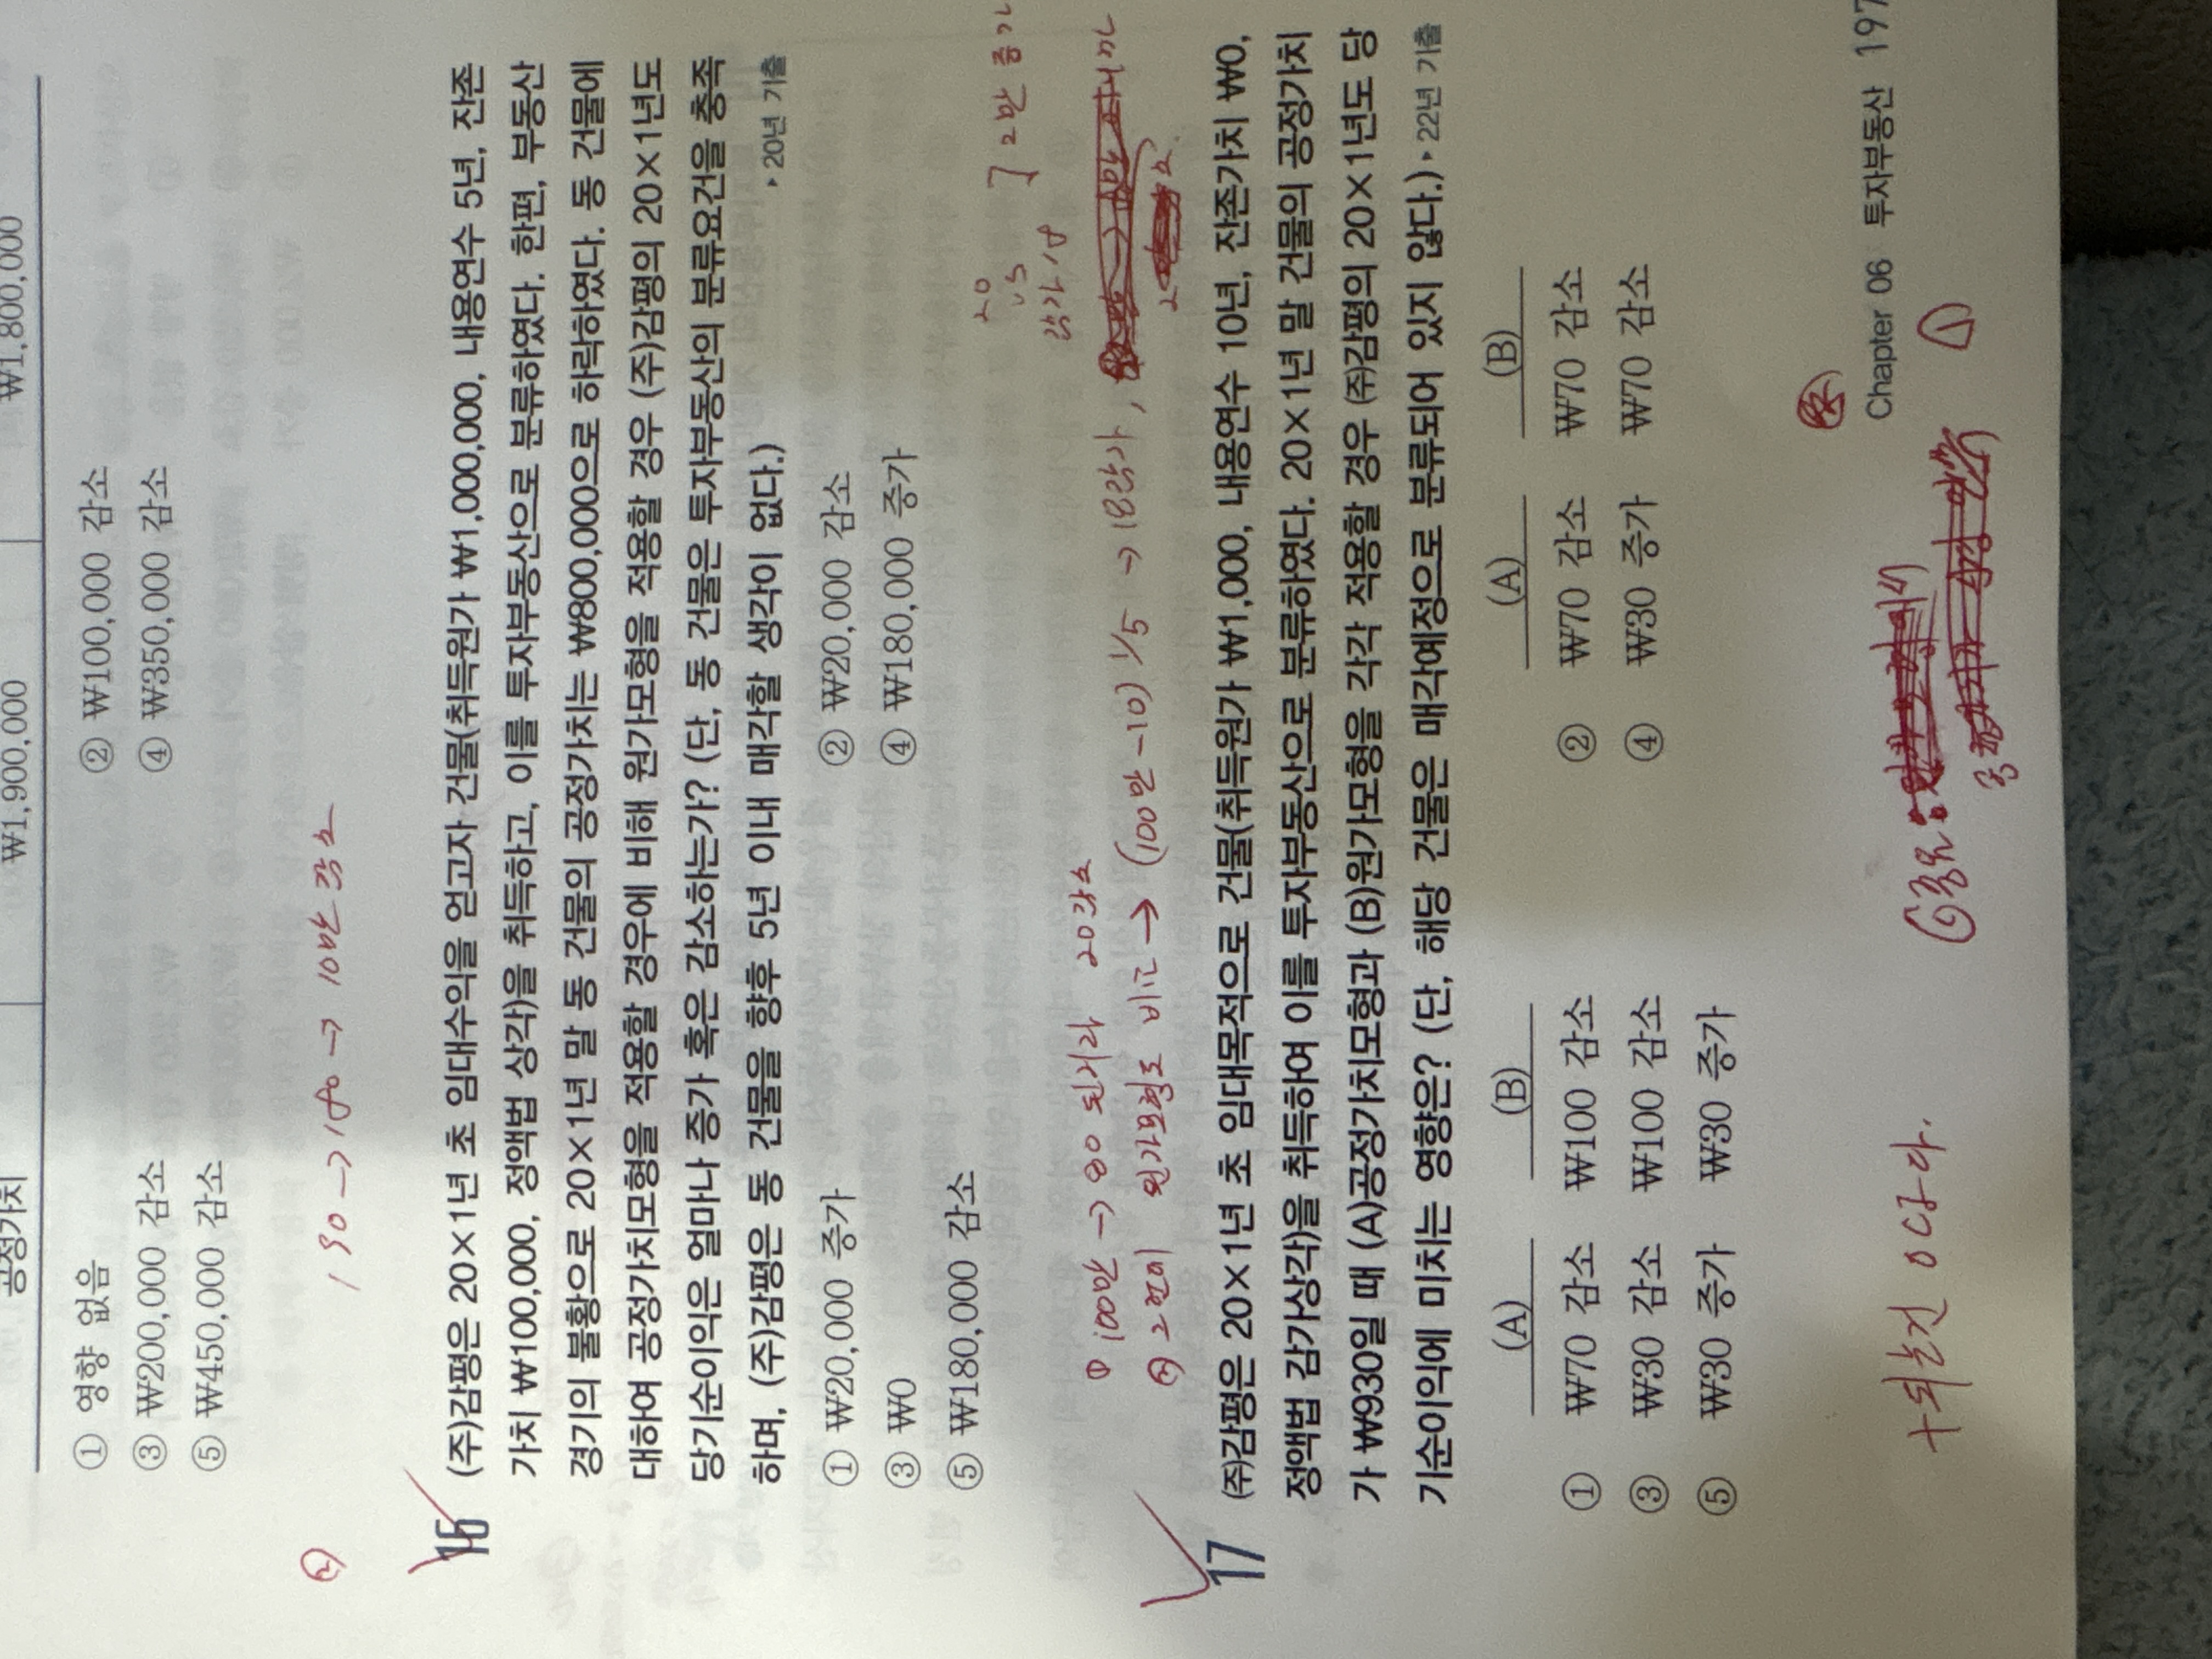 공정가치 ₩1,900,000 ₩1,800,000
① 영향 없음 ② ₩100,000 감소
③ ₩200,000 감소 ④ ₩350,000 감소
⑤ ₩450,000 감소
② 190 → 180 → 10만 감소
16 (주)감평은 20×1년 초 임대수익을 얻고자 건물(취득원가 ₩1,000,000, 내용연수 5년, 잔존
가치 ₩100,000, 정액법 상각)을 취득하고, 이를 투자부동산으로 분류하였다. 한편, 부동산
경기의 불황으로 20×1년 말 동 건물의 공정가치는 ₩800,000으로 하락하였다. 동 건물에
대하여 공정가치모형을 적용할 경우에 비해 원가모형을 적용할 경우 (주)감평의 20×1년도
당기순이익은 얼마나 증가 혹은 감소하는가? (단, 동 건물은 투자부동산의 분류요건을 충족
하며, (주)감평은 동 건물을 향후 5년 이내 매각할 생각이 없다.) ▸ 20년 기출
① ₩20,000 증가 ② ₩20,000 감소
③ ₩0 ④ ₩180,000 증가
⑤ ₩180,000 감소
20
vs
감가 18
2만 증가
① 100만 → 80 된거라 20감소
② 2번이 원가모형도 비교 → (100만-10) 1/5 → 18감가,
17 ㈜감평은 20×1년 초 임대목적으로 건물(취득원가 ₩1,000, 내용연수 10년, 잔존가치 ₩0,
정액법 감가상각)을 취득하여 이를 투자부동산으로 분류하였다. 20×1년 말 건물의 공정가치
가 ₩930일 때 (A)공정가치모형과 (B)원가모형을 각각 적용할 경우 ㈜감평의 20×1년도 당
기순이익에 미치는 영향은? (단, 해당 건물은 매각예정으로 분류되어 있지 않다.) ▸ 22년 기출
(A) (B) (A) (B)
① ₩70 감소 ₩100 감소 ② ₩70 감소 ₩70 감소
③ ₩30 감소 ₩100 감소 ④ ₩30 증가 ₩70 감소
⑤ ₩30 증가 ₩30 증가
Chapter 06 투자부동산 197
+되는건 아니다.